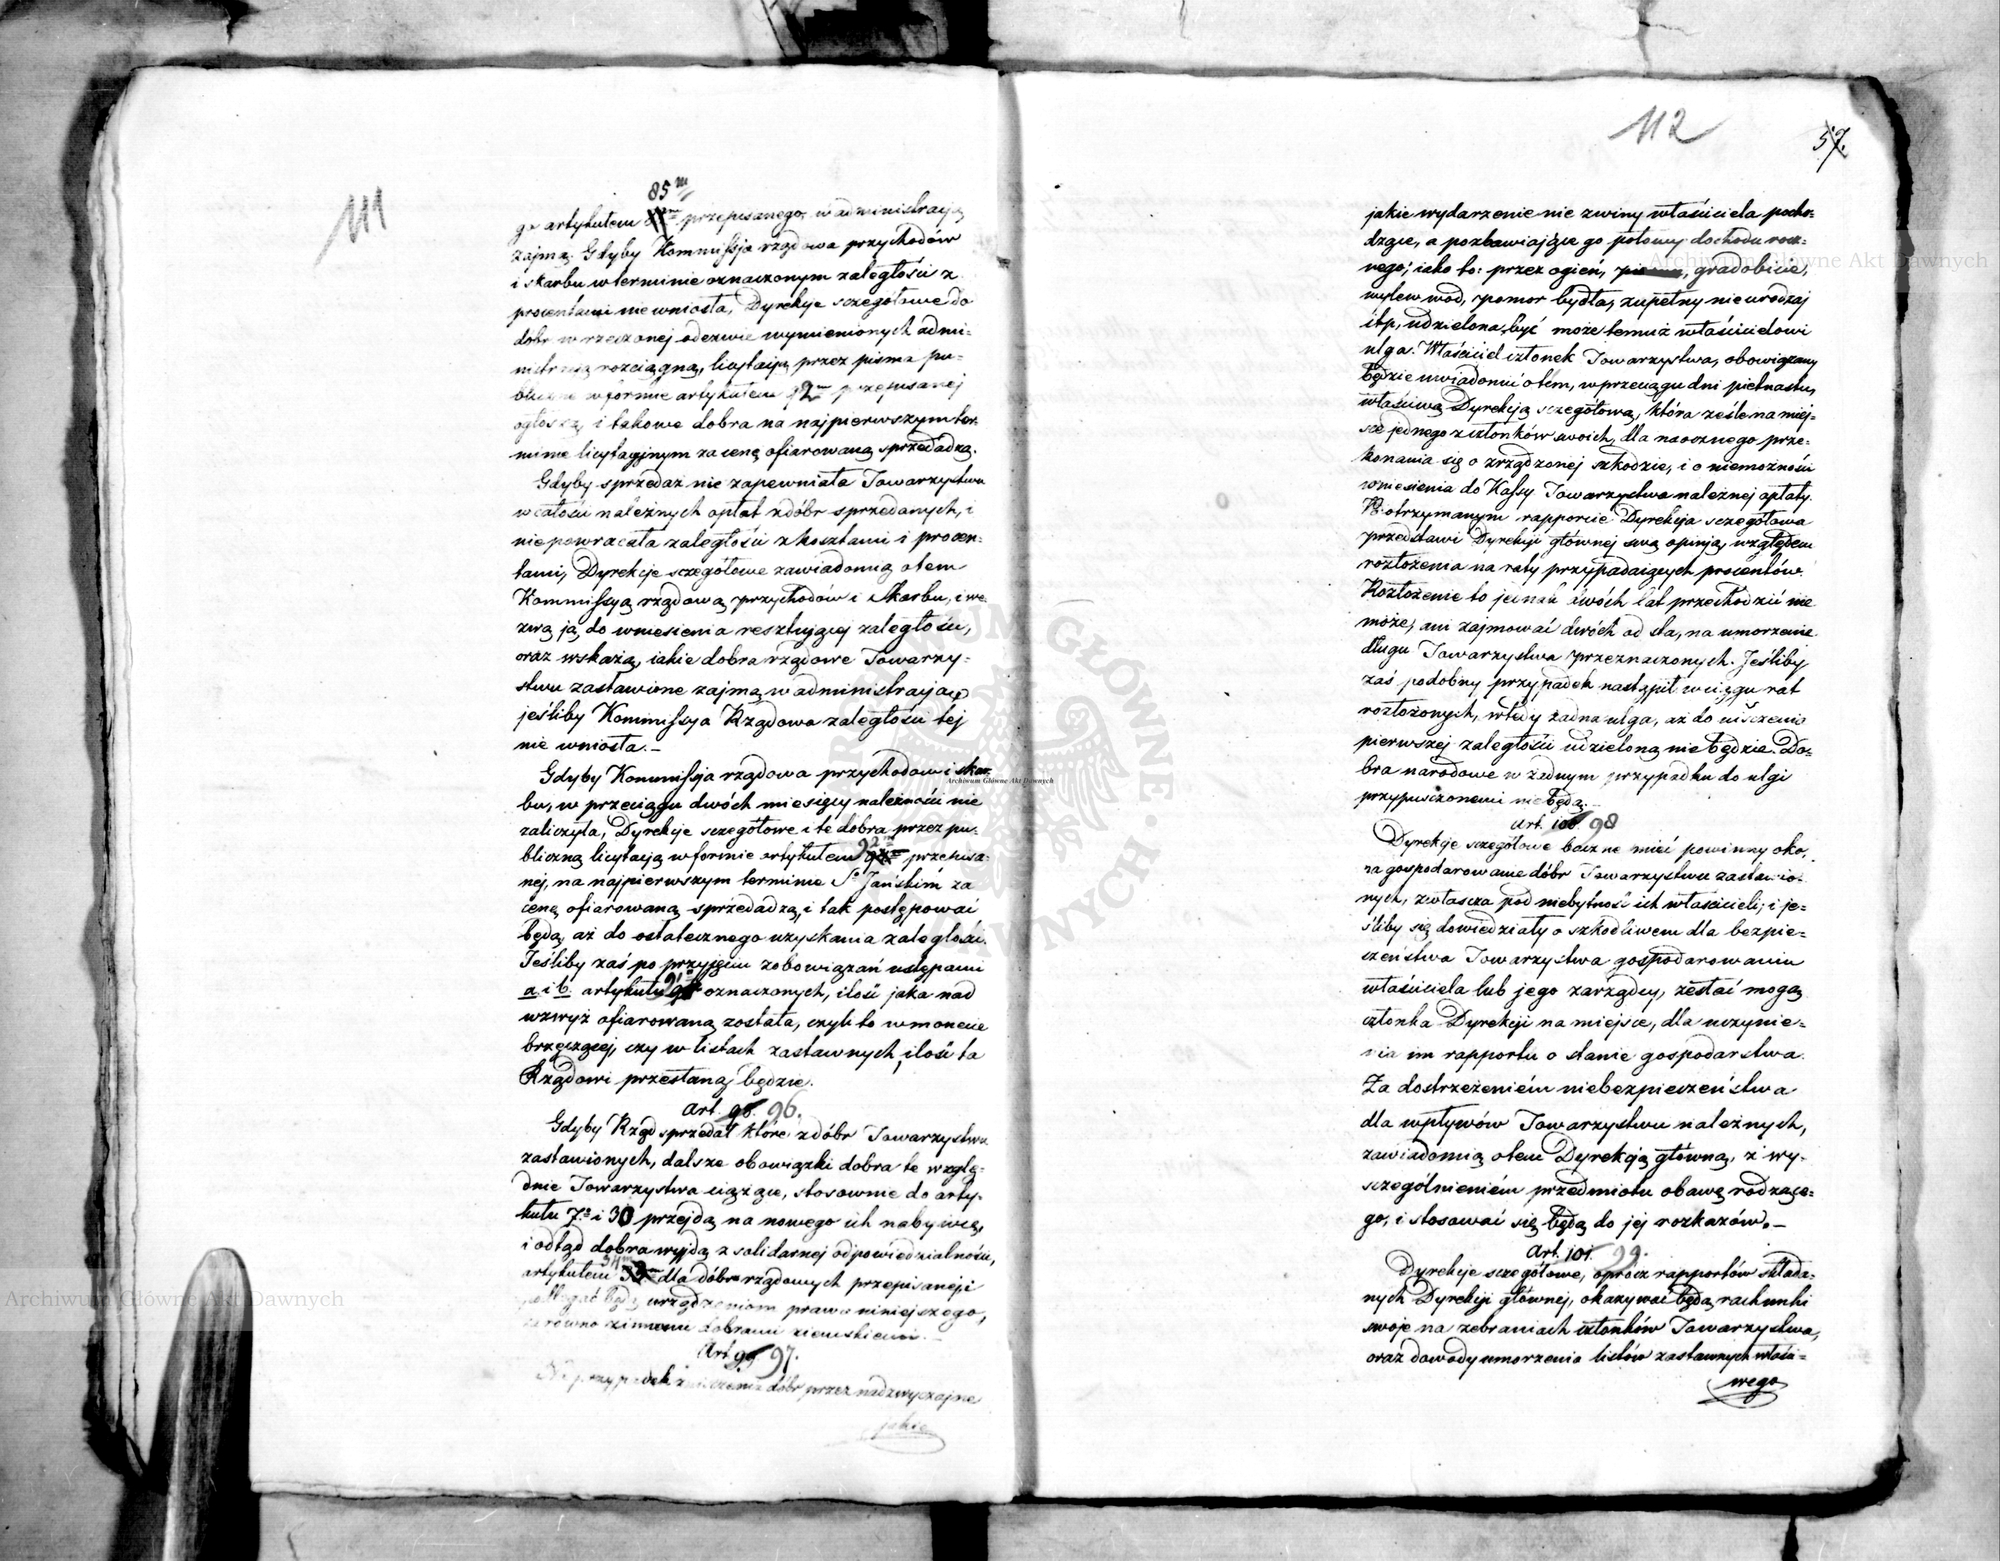 111
85m
go artykułem przepisanego, w administracją
zajmą. Gdyby Kommissja rządowa przychodów
i skarbu w terminie oznaczonym zaległości z
procentami niewniosła, Dyrekcje sczegółowe do
dóbr w rzeczonej odezwie wymienionych admi-
nistracją rozciągną, licytacją przez pisma pu-
bliczne w formie artykułem 92m przepisanej
ogłoszą, i takowe dobra na najpierwszym ter-
minie licytacyjnym za cenę ofiarowaną sprzedadzą.
Gdyby sprzedaż nie zapewniała Towarzystwu
w całości należnych opłat z dóbr sprzedanych, i
niepowracała zaległości z kosztami i procen-
tami, Dyrekcje sczegółowe zawiadomią otem
Kommissyą rządową przychodów i Skarbu, i we-
zwą ją, do wniesienia resztującej zaległości,
oraz wskażą, iakie dobra rządowe Towarzy-
stwu zastawione zajmą w administracją,
jeśliby Kommissya Rządowa zaległości tej
nie wniosła. —
Gdyby Kommissja rządowa przychodów i skar-
bu, w przeciągu dwóch miesięcy należności nie
zaliczyła, Dyrekcje sczegółowe i te dobra przez pu-
bliczną licytacją w formie artykułem 92m przepisa-
nej, na najpierwszym terminie St Jańskim za
cenę ofiarowaną sprzedadzą, i tak postępować
będą, aż do ostatecznego uzyskania zaległości.
Jeśliby zaś po przyjęciu zobowiązań ustępami
a. i b. artykułu 91 oznaczonych, ilość jaka nad
wzwyż ofiarowaną została, czyli to w monecie
brzęczącej, czy w listach zastawnych, ilość ta
Rządowi przesłaną będzie.
Art. 98. 96.
Gdyby Rząd sprzedał które z dóbr Towarzystwu
zastawionych, dalsze obowiązki dobra te wzglę-
dnie Towarzystwa ciążące, stosownie do arty-
kułu 7o i 30 przejdą na nowego ich nabywcę,
i odtąd dobra wyjdą z solidarnej odpowiedzialności,
artykułem 34m dla dóbr rządowych przepisanej i
ulegać będą urządzeniom prawa niniejszego,
zarówno z innemi dobrami ziemskiemi. —
Art. 99. 97.
Na przypadek zniszczenia dóbr przez nadzwyczajne
jakie
112
57.
jakie wydarzenie nie zwiny właściciela pocho-
dzące, a pozbawiające go połowy dochodu rocz-
nego; iako to: przez ogień, gradobicie,
wylew wód, pomor bydła, zupełny nieurodzaj
itp, udzieloną być może temuż właścicielowi
ulga. Właściciel członek Towarzystwa, obowiązany
będzie uwiadomić otem, w przeciągu dni piętnastu,
właściwą Dyrekcją sczegółową, która ześle na miej-
sce jednego z członków swoich, dla naocznego prze-
konania się o zrządzonej szkodzie, i o niemożności
wniesienia do Kassy Towarzystwa należnej opłaty.
Po otrzymanym rapporcie Dyrekcja sczegółowa
przedstawi Dyrekcji głównej swą opinją, względem
rozłożenia na raty przypadaiących procentów.
Rozłożenie to jednak dwóch lat przechodzić nie
może, ani zajmować dwóch od sta, na umorzenie
długu Towarzystwa przeznaczonych. Jeśliby
zaś podobny przypadek nastąpił w ciągu rat
rozłożonych, wtedy żadna ulga, aż do uiszczenia
pierwszej zaległości udzieloną nie będzie. Do-
bra narodowe w żadnym przypadku do ulgi
przypuszczonemi nie będą. —
Art. 100. 98
Dyrekcje sczegółowe baczne mieć powinny oko,
na gospodarowanie dóbr Towarzystwu zastawio-
nych, zwłaszcza pod niebytność ich właścicieli; i je-
śliby się dowiedziały o szkodliwem dla bezpie-
czeństwa Towarzystwa gospodarowaniu
właściciela lub jego zarządcy, zesłać mogą
członka Dyrekcji na miejsce, dla uczynie-
nia im rapportu o stanie gospodarstwa.
Za dostrzeżeniem niebezpieczeństwa
dla wpływów Towarzystwu należnych,
zawiadomią otem Dyrekcją główną, z wy-
sczególnieniem przedmiotu obawę rodzące-
go, i stosować się będą do jej rozkazów. —
Art. 101. 99.
Dyrekcje sczegółowe, oprócz rapportów składa-
nych Dyrekcji głównej, okazywać będą rachunki
swoje na zebraniach członków Towarzystwa,
oraz dowody umorzenia listów zastawnych właści-
wego
Archiwum Główne Akt Dawnych
Archiwum Główne Akt Dawnych
Archiwum Główne Akt Dawnych
ARCHIWUM GŁÓWNE AKT DAWNYCH